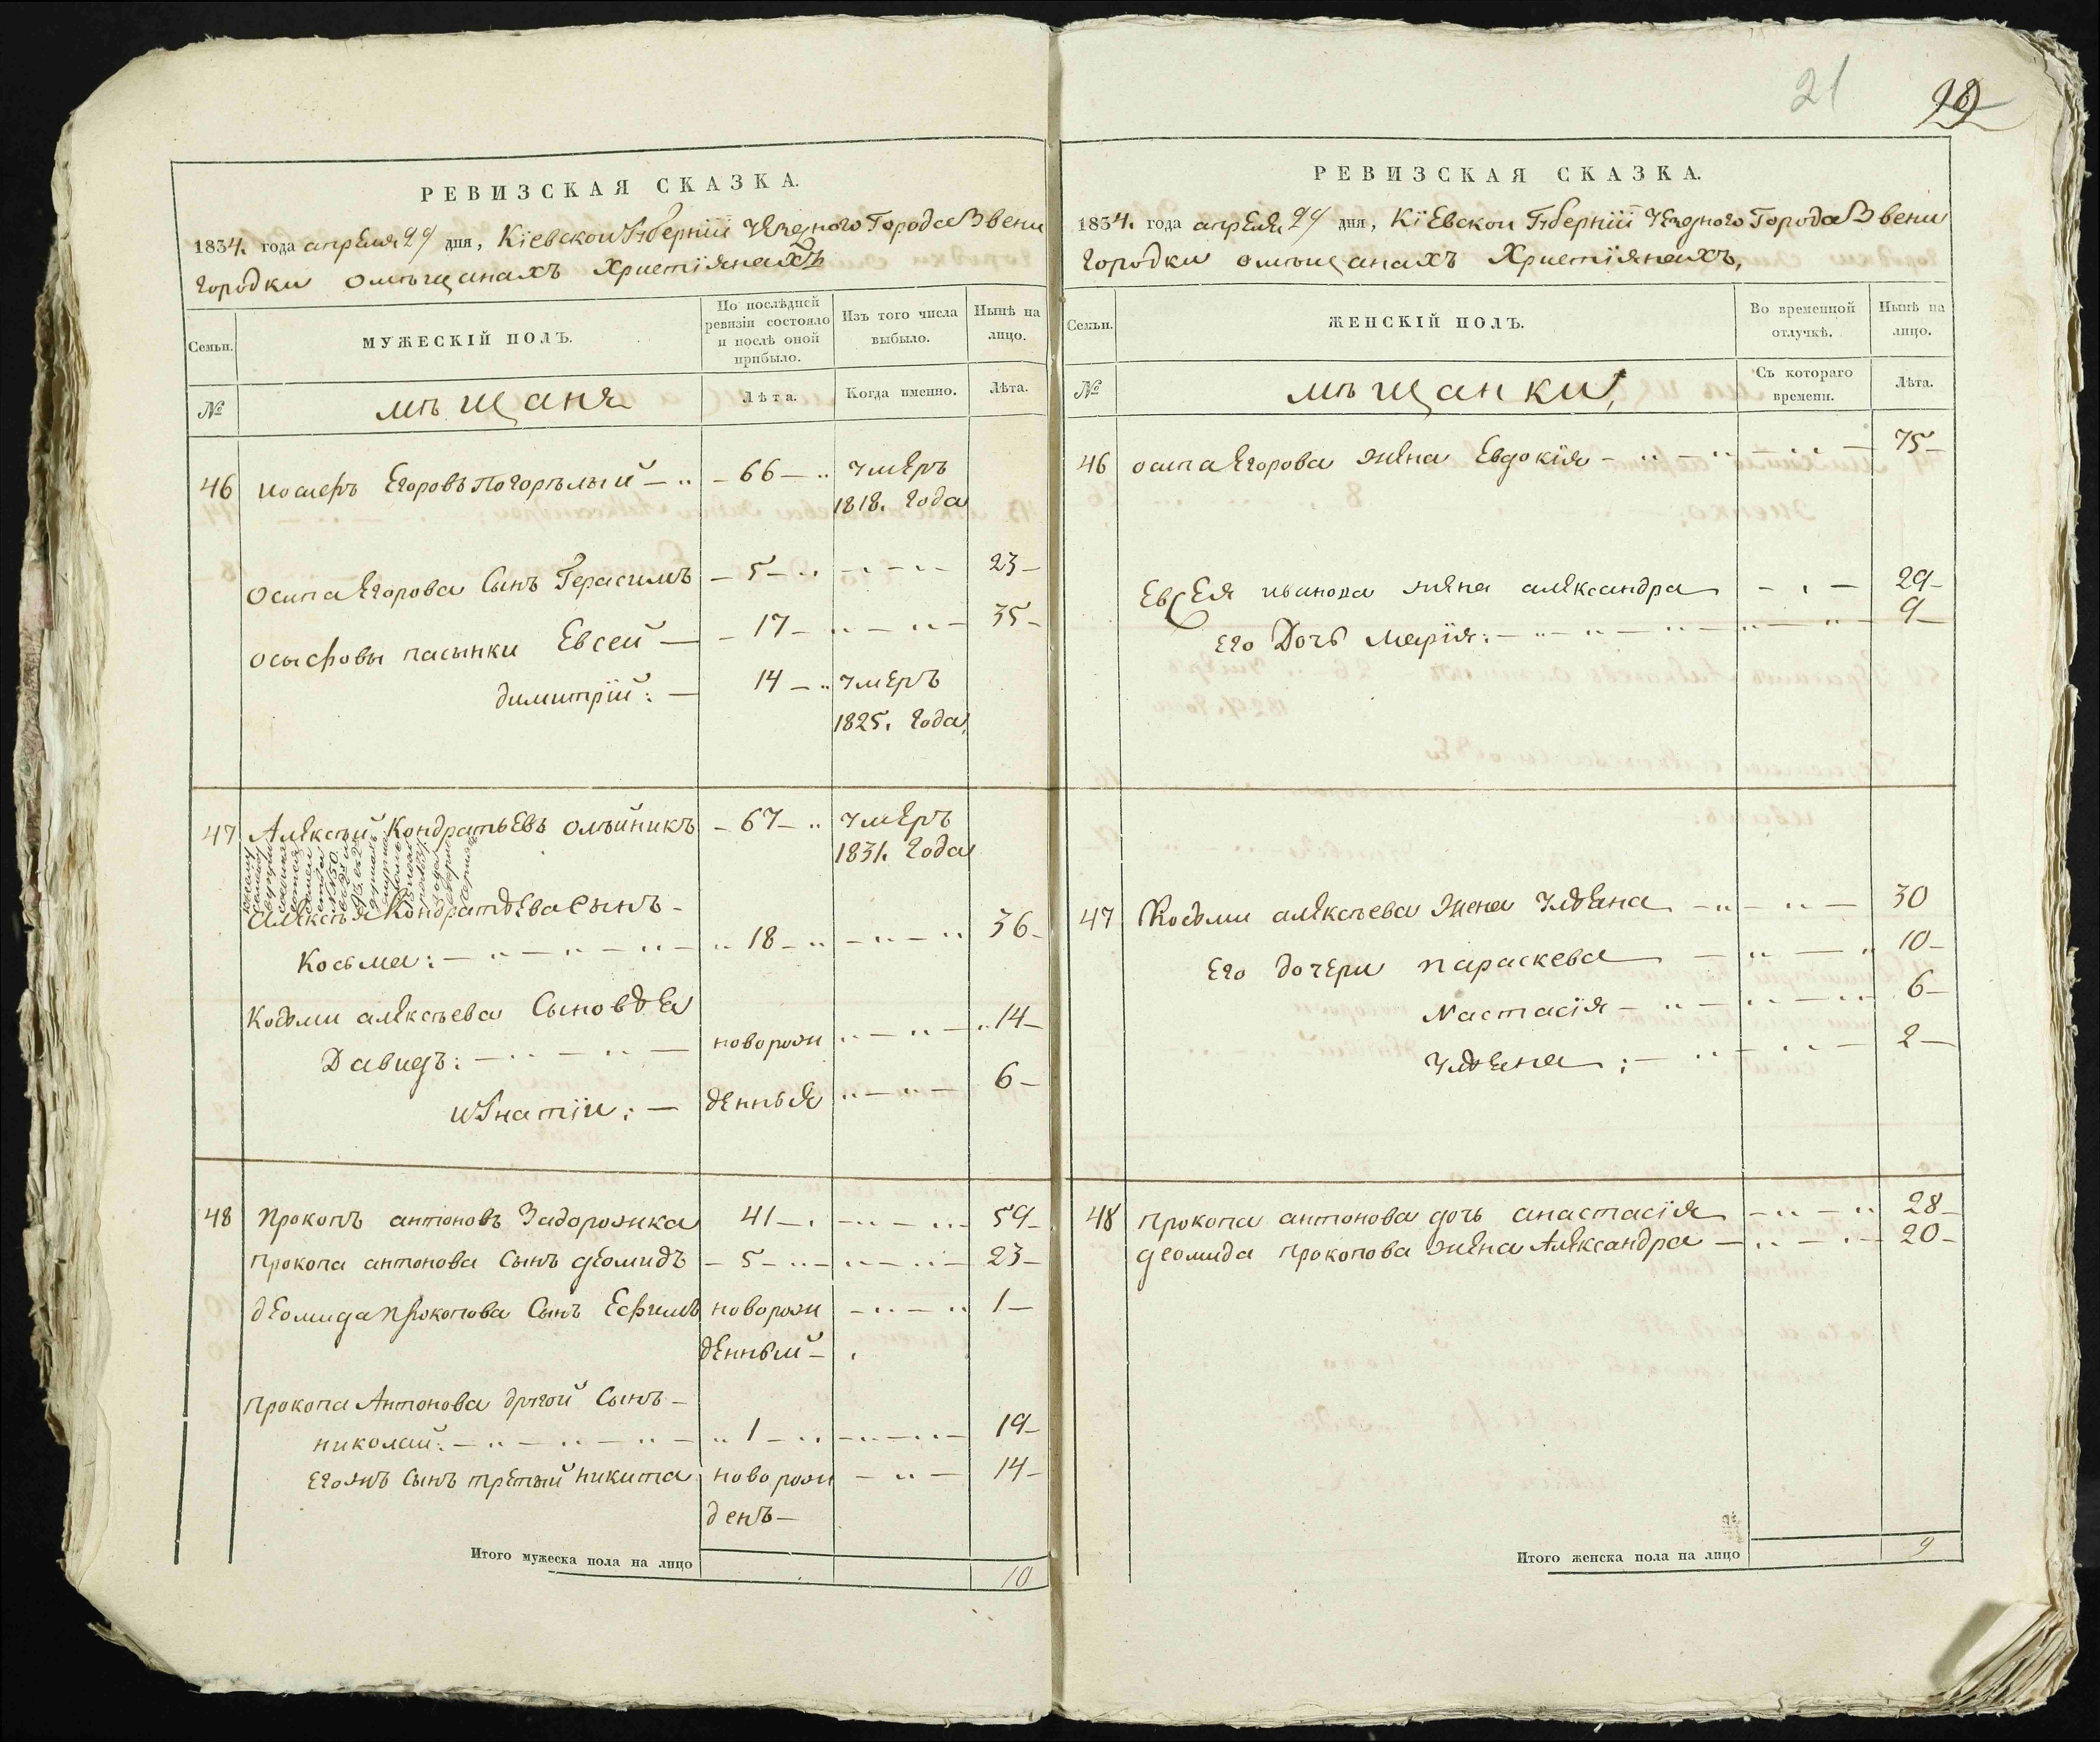 РЕВИЗСКАЯ СКАЗКА.
1834. года апреля 29 дня, Кіевской Губерніи Уезднаго Города Звени
городки о мѣщанахъ Христіянахъ
Семьи.
МУЖЕСКІЙ ПОЛЪ.
По послѣдней
ревизіи состояло
и послѣ оной
прибыло.
Изъ того числа
выбыло.
Нынѣ на
лицо.
№
мѣщаня
Лѣта.
Когда именно.
Лѣта.
46 иосифъ Егоровъ Погорѣлый 66 умеръ
1818. года
осипа Егорова Сынъ Герасимъ 5 23
осыфовы пасынки Евсей 17 35
димитрій: 14 умеръ
1825. года
47 Алексѣй Кондратьевъ олѣйникъ 67 умеръ
1831. года
Алексѣя Кондратьева сынъ
Косьма: 18 36
Косьми алексѣева Сыновья
Давидъ: новорож 14
игнатіи: денныя 6
48 Прокопъ антоновъ Задорожка 41 59
Прокопа антонова Сынъ деомидъ 5 23
деомида Прокопова Сынъ Ефимъ новорож 1
денный
Прокопа Антонова другой Сынъ
николай: 1 19
Егожъ Сынъ третый никита новорож 14
денъ
Итого мужеска пола на лицо 10
21
РЕВИЗСКАЯ СКАЗКА.
1834. года апреля 29 дня, Кіевской Губерніи Уезднаго Города Звени
городки о мѣщанахъ Христіянахъ,
Семьи.
ЖЕНСКІЙ ПОЛЪ.
Во временной
отлучкѣ.
Нынѣ на
лицо.
№
мѣщанки,
Съ котораго
времени.
Лѣта.
46 осипа Егорова жена Евдокія 75
Евсея иванова жена александра 29
Его Дочь Марія: 9
47 Косьми алексѣева жена Ульяна 30
Его дочери параскева 10
Настасія 6
Ульяна: 2
48 Прокопа антонова дочь анастасія 28
деомида Прокопова жена Александра 20
Итого женска пола на лицо 9